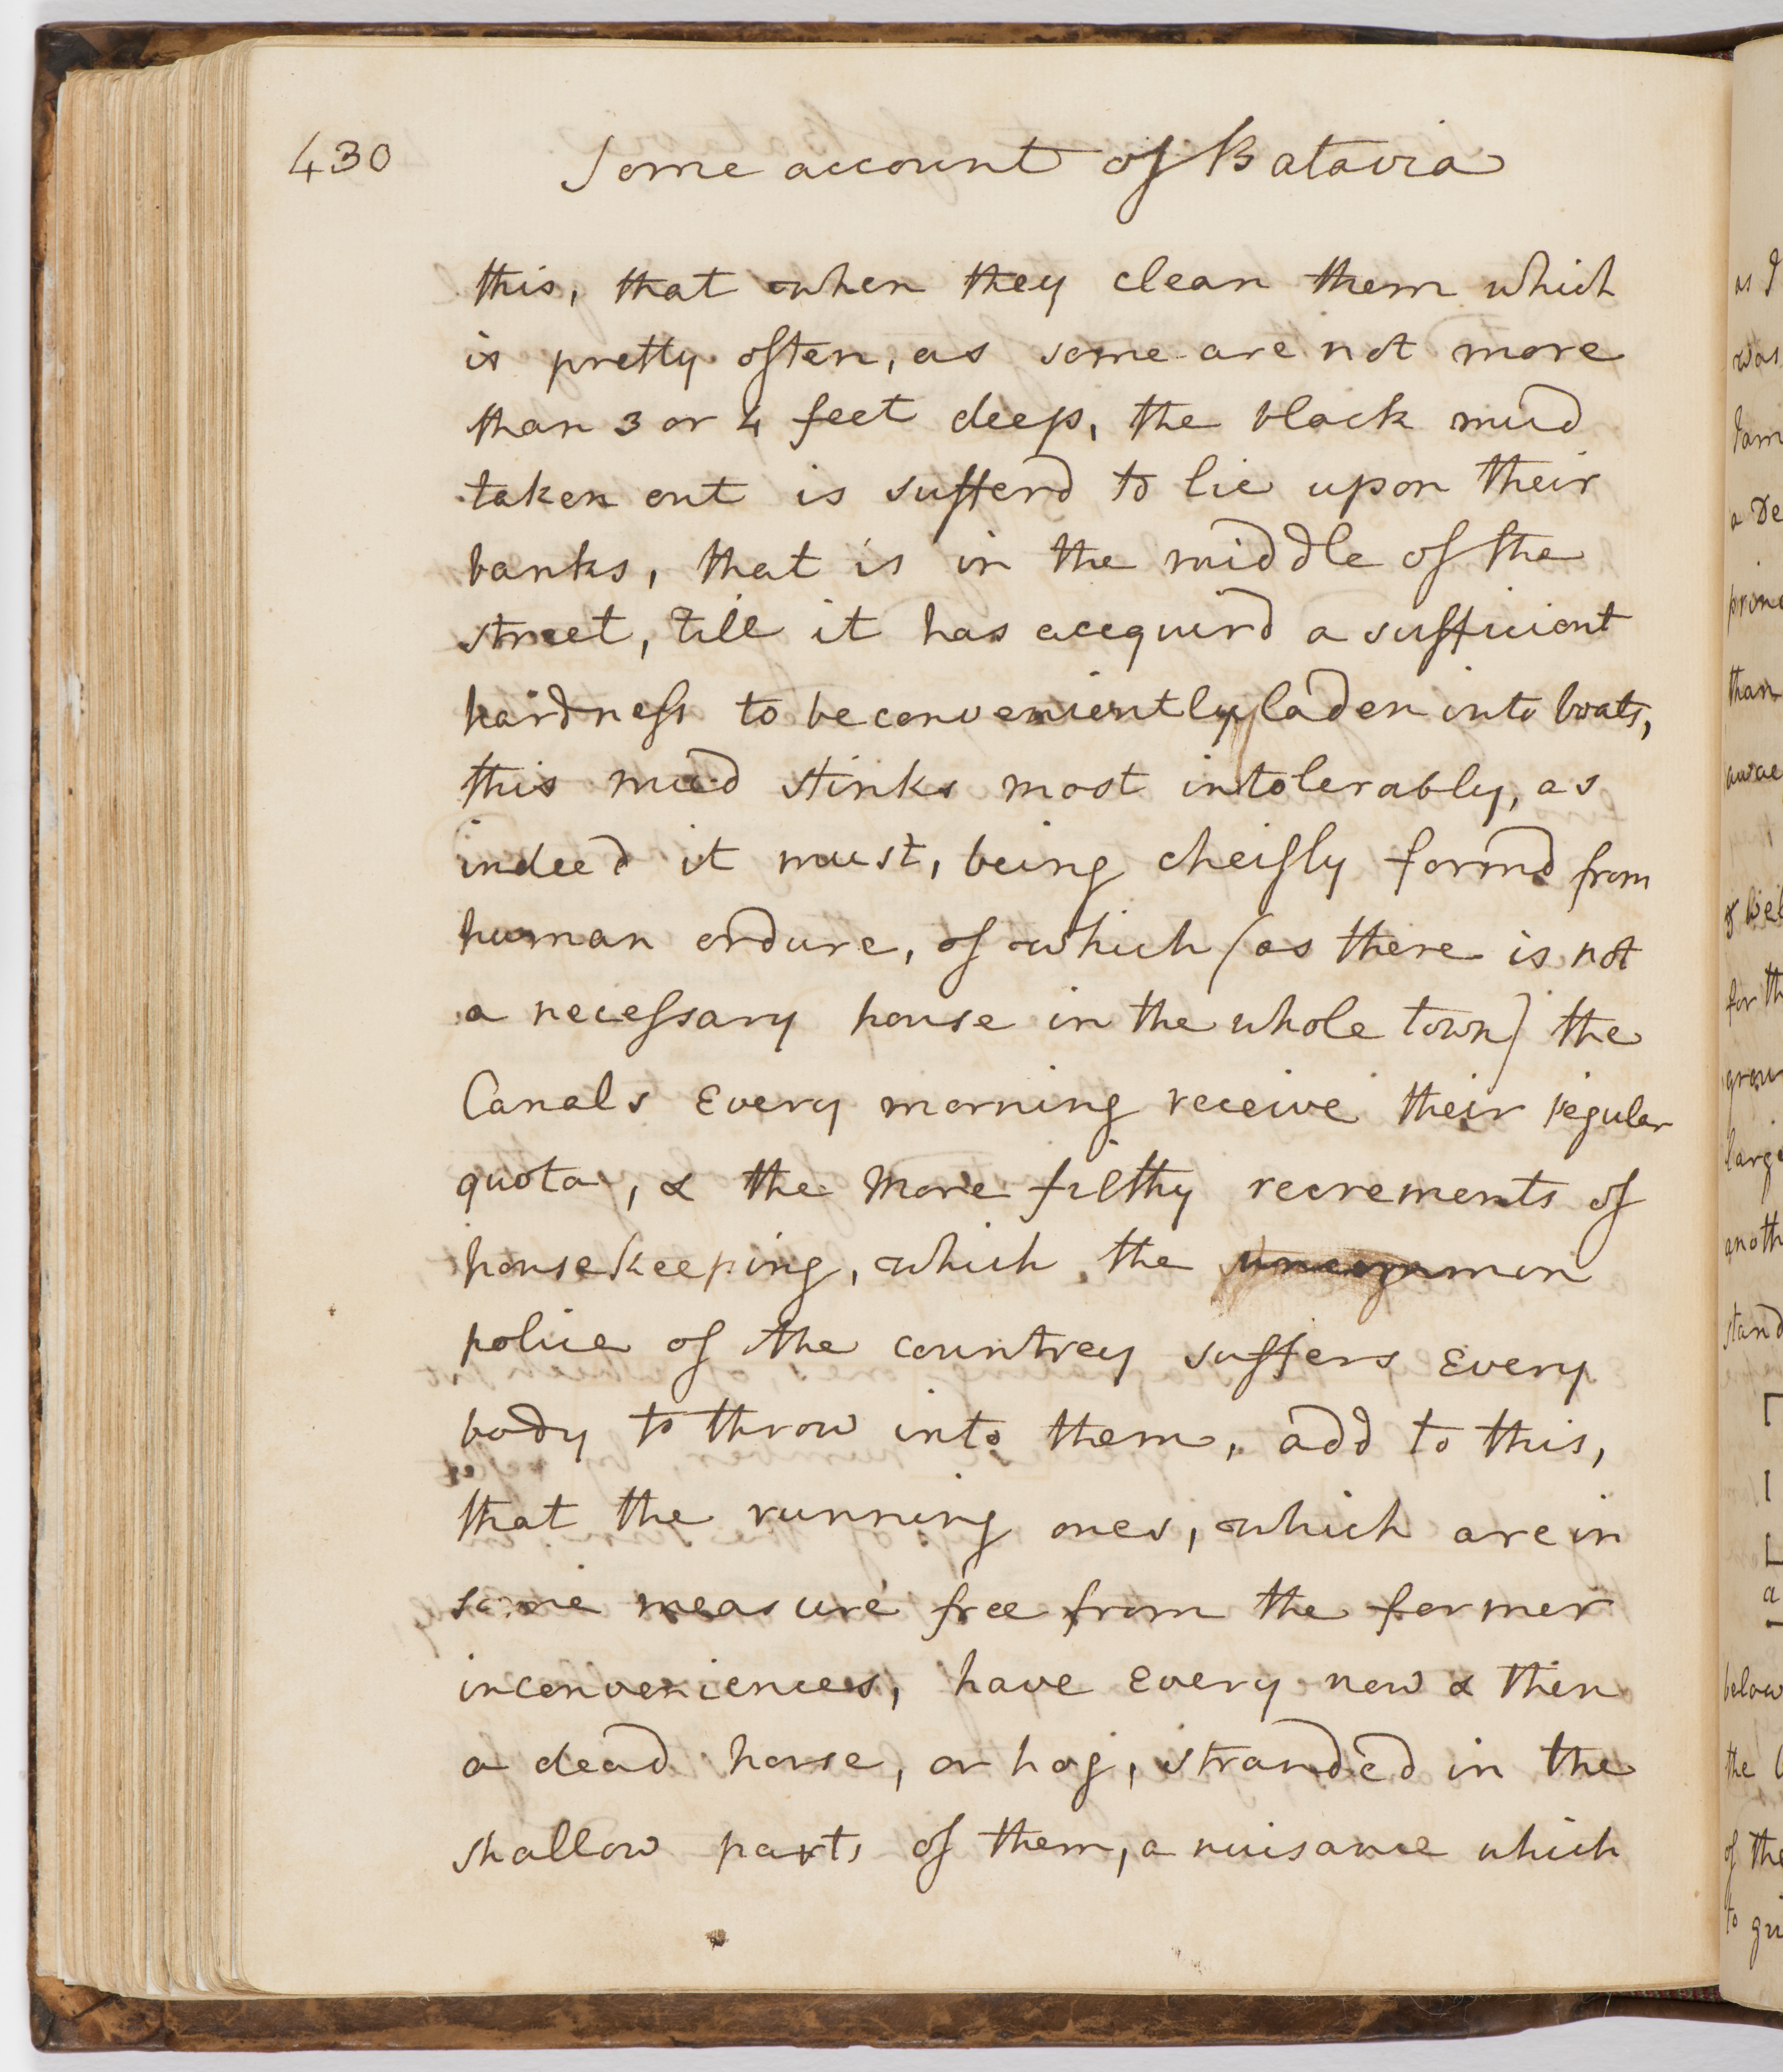 430 Some account of Batavia
this, that when they clean them which
is pretty often, as some are not more
than 3 or 4 feet deep, the black mud
taken out is sufferd to lie upon their
banks, that is in the middle of the
street, till it has acequird a sufficient
hardness to be conveniently laden into boats,
this mud stinks most intolerably, as
indeed it must, being cheifly formd from
human ordure, of which (as there is not
a necessary house in the whole town) the
Canals Every morning receive their regular
quota, & the more filthy recrements of
housekeeping, which the uncommon
police of the countrey suffers Every
body to throw into them, add to this,
that the running ones, which are in
some measure free from the former
inconveniences, have Every now & then
a dead horse, or hog, stranded in the
shallow parts of them, a nuisance which
as I
was
a De
than
for th
anoth
stand
below
the
of the
to